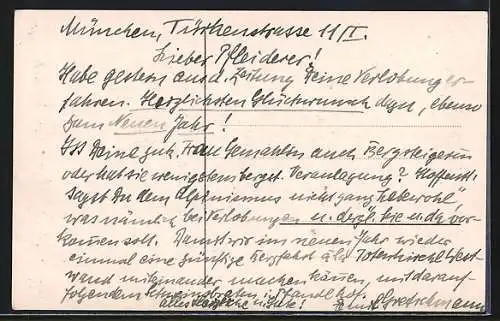 München, Türkenstrasse 11/II.
Lieber Pfleiderer!
Habe gestern aus d. Zeitung Deine Verlobung er-
fahren. Herzlichsten Glückwunsch dazu, ebenso
zum Neuen Jahr!
Ist Deine zuk. Frau Gemahlin auch Bergsteigerin
oder hat sie wenigstens bergst. Veranlagung? Hoffentl.
sagst Du dem Alpinismus nicht ganz "Lebewohl",
was nämlich bei Verlobungen u. dergl. hie u. da vor-
kommen soll. Damit wir im neuen Jahr wieder
einmal eine zünftige Bergfahrt à la Totenkirchl West-
wand miteinander machen können, mit darauf-
folgendem Schweinsbraten in Pfandlhof.
alles Herzliche u. Gute!